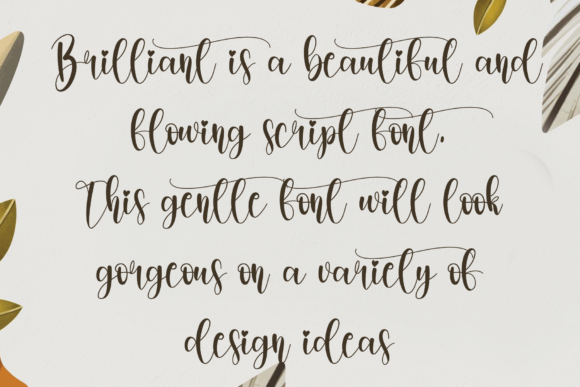 Brilliant is a beautiful and
flowing script font.
This gentle font will look
gorgeous on a variety of
design ideas